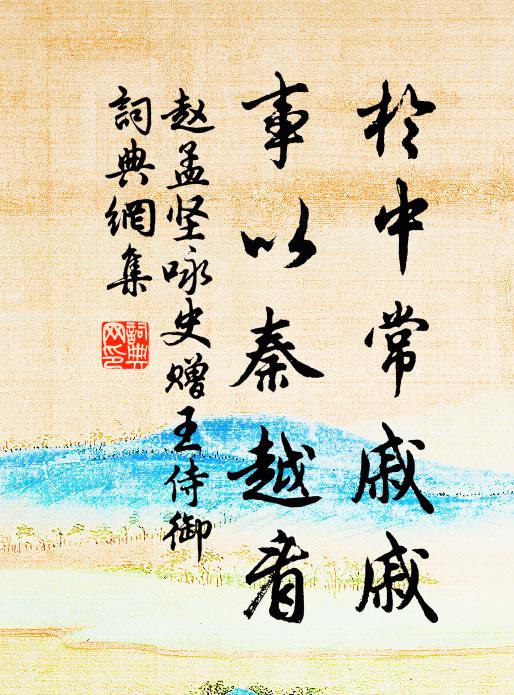 於中常戚戚
事以秦越看
赵孟坚咏史赠王侍御
詞典網集
詞典網印